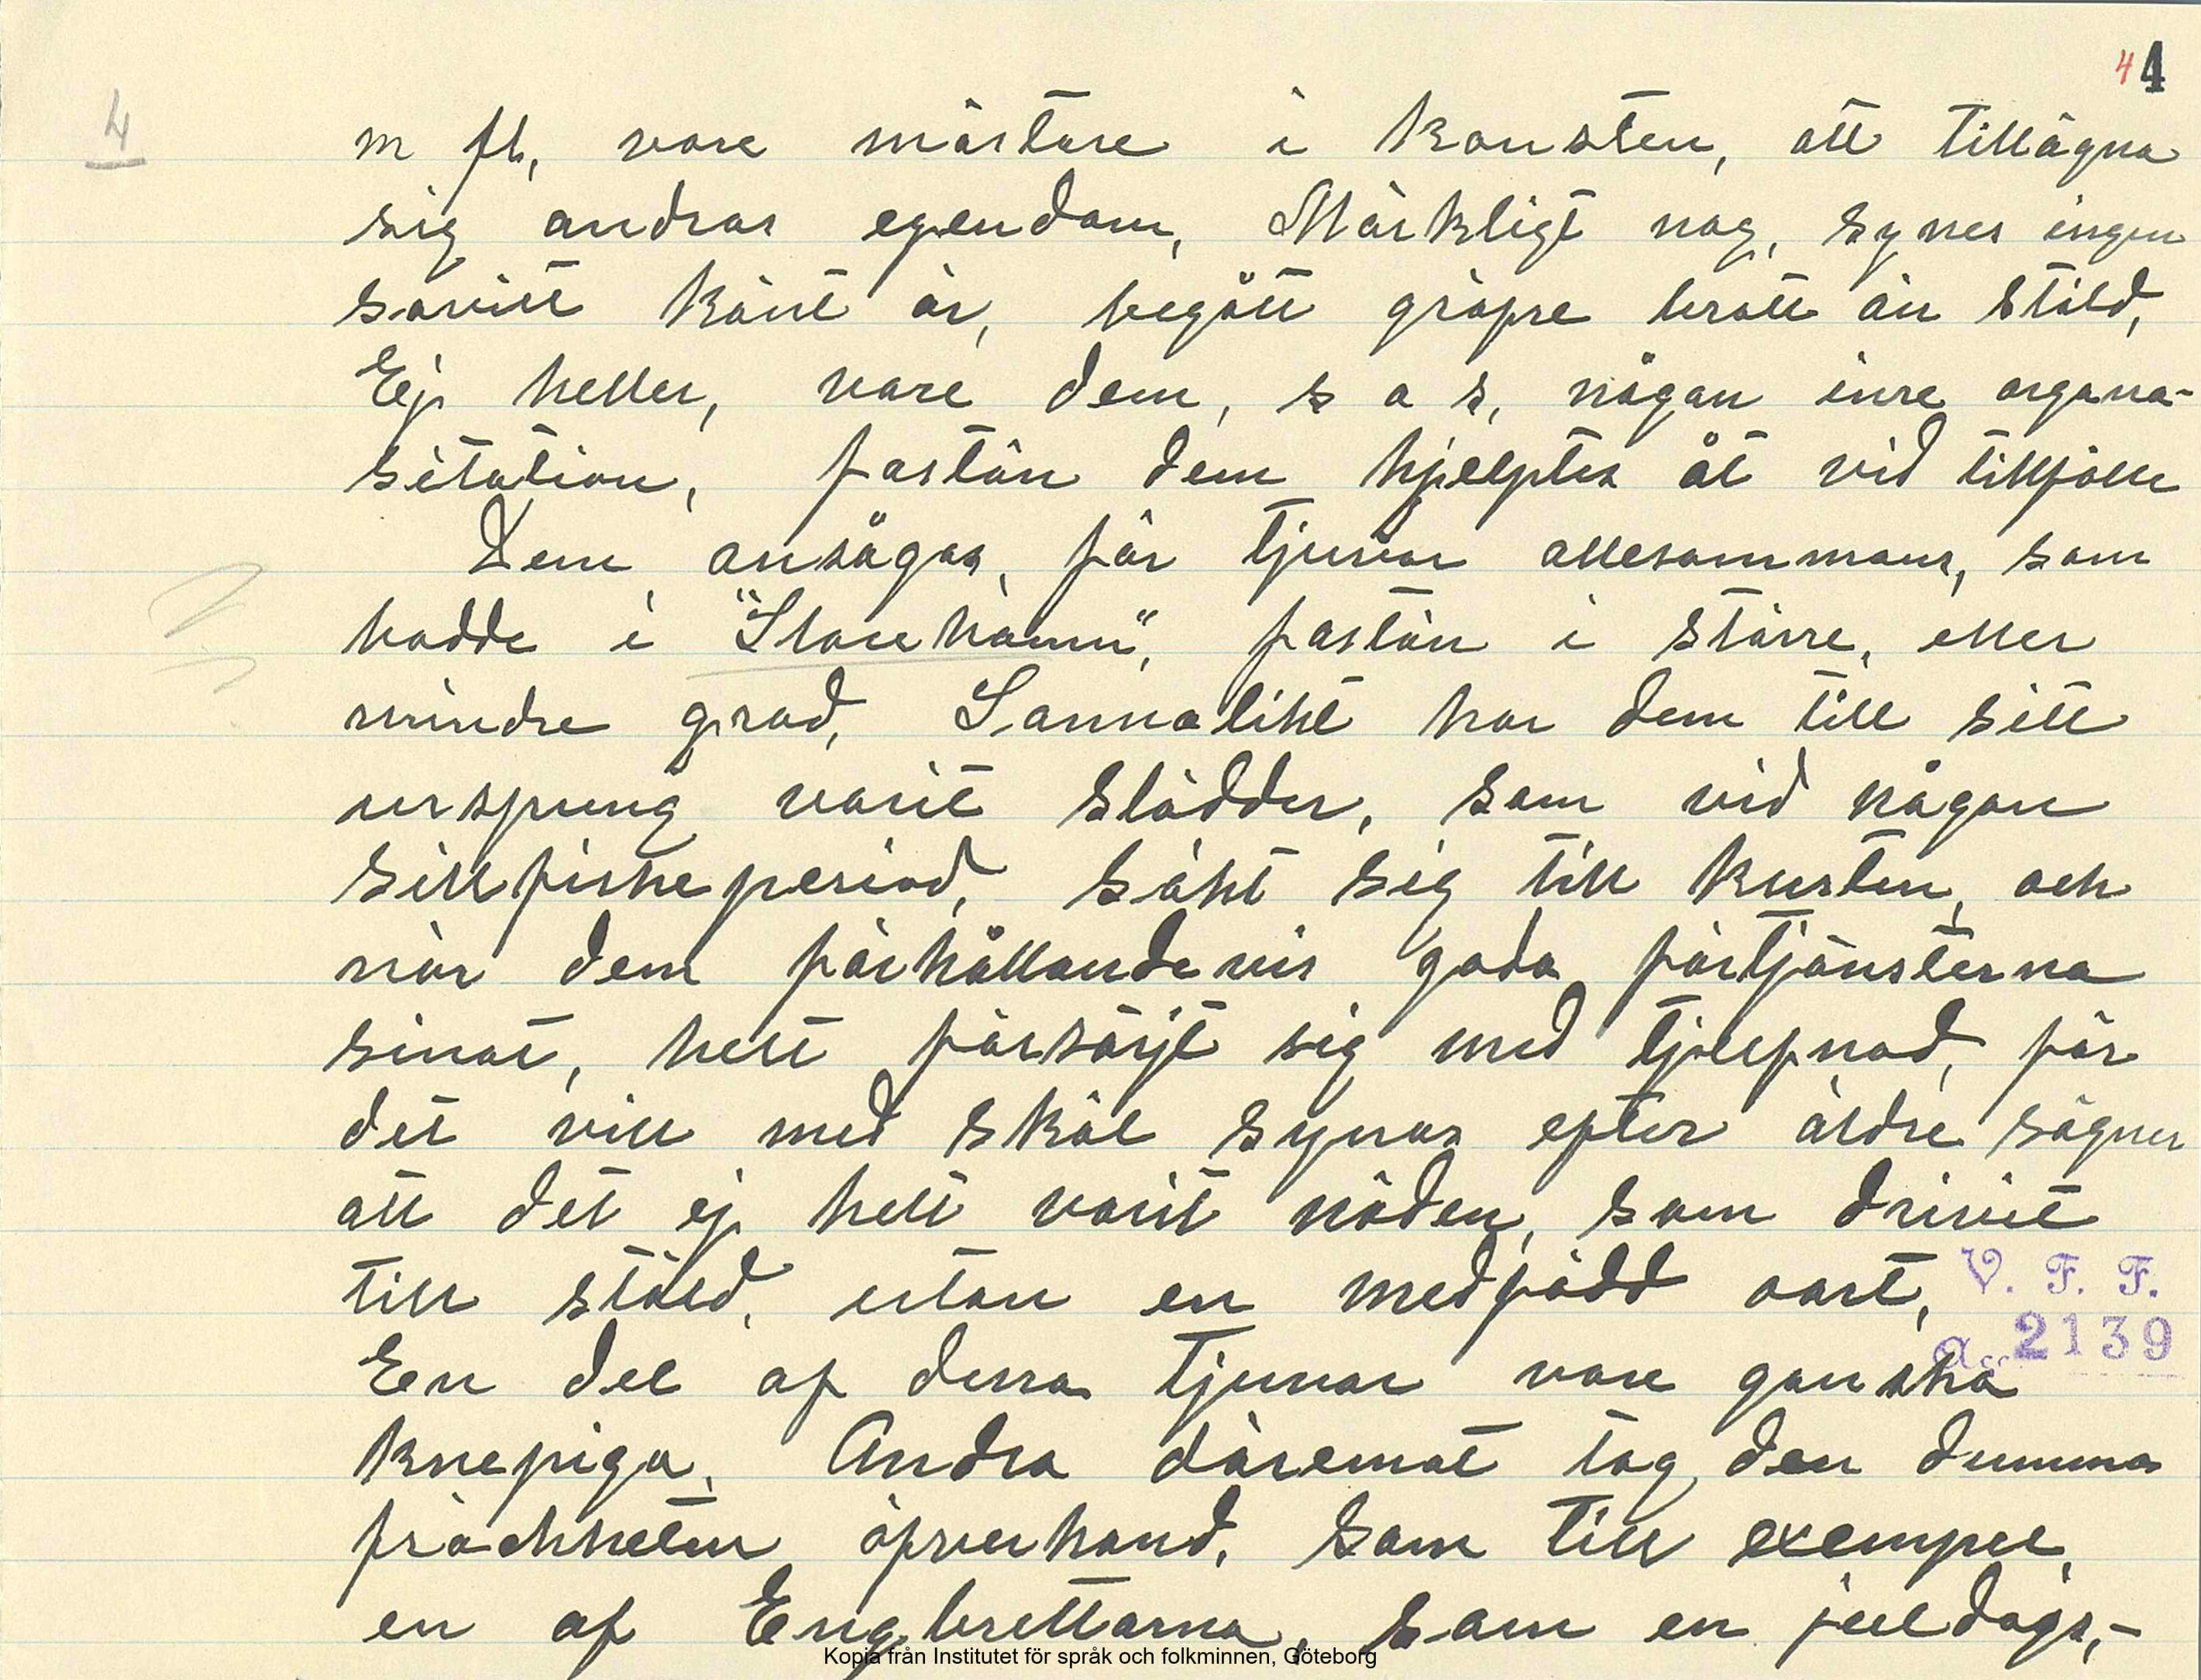 4 4
4
m fl, vore mästare i konsten, att tillägna
sig andras egendom, Märkligt nog, synes ingen
savitt känt är, begått gröpre brott än stöld,
Ej heller, vore dem, s a s, någon inre organa-
sitation, fastän dem hjelptes åt vid tillfälle
Dem ansågos, för tjuvar allesammans, som
bodde i "Storehamn", fastän i större, eller
mindre grad, Sannolikt har dem till sitt
ursprung varit slödder, som vid någon
sillfiskeperiod, sökt sig till kusten, och
när dem förhållandevis goda förtjänsterna
sinat, helt försörjt sig med tjufnad, för
det vill med skäl synas efter äldre sägner
att det ej helt varit nöden, som drivit
till stöld, utan en medfödd oart,
V. F. F.
a. 2139
En del af dessa tjuvar vore ganska
knepiga, Andra däremot tog den dumma
fräckheten öfverhand, som till exempel,
en af Engbrettarna, som en juldags,-
Kopia från Institutet för språk och folkminnen, Göteborg